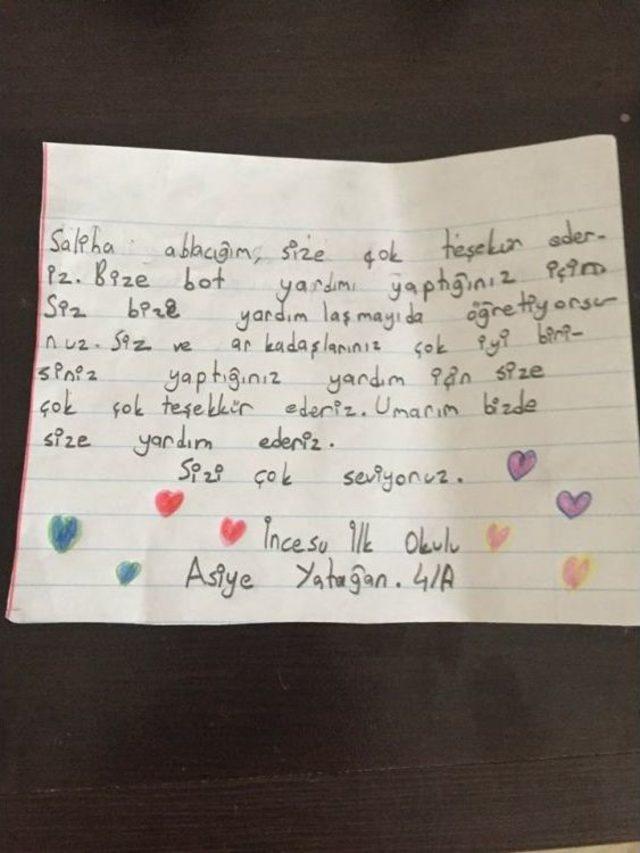 Saliha ablacığım, size çok teşekür eder-
iz. Bize bot yardımı yaptığınız için
Siz bize yardım laşmayıda öğretiyorsu
nuz. Siz ve ar kadaşlarınız çok iyi biri-
siniz yaptığınız yardım için size
çok çok teşekkür ederiz. Umarım bizde
size yardım ederiz.
Sizi çok seviyoruz.
İncesu İlk Okulu
Asiye Yatağan. 4/A